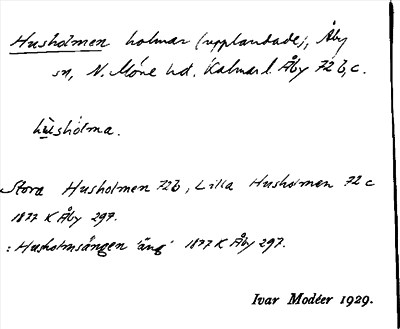 Husholmen holmar (upplandade), Åby
sn, N. Möre hd. Kalmar l. Åby 72 b, c.
hùsholma.
Stora Husholmen 72b, Lilla Husholmen 72 c
1877 K Åby 297.
: Husholmsängen 'äng' 1877 K Åby 297.
Ivar Modéer 1929.